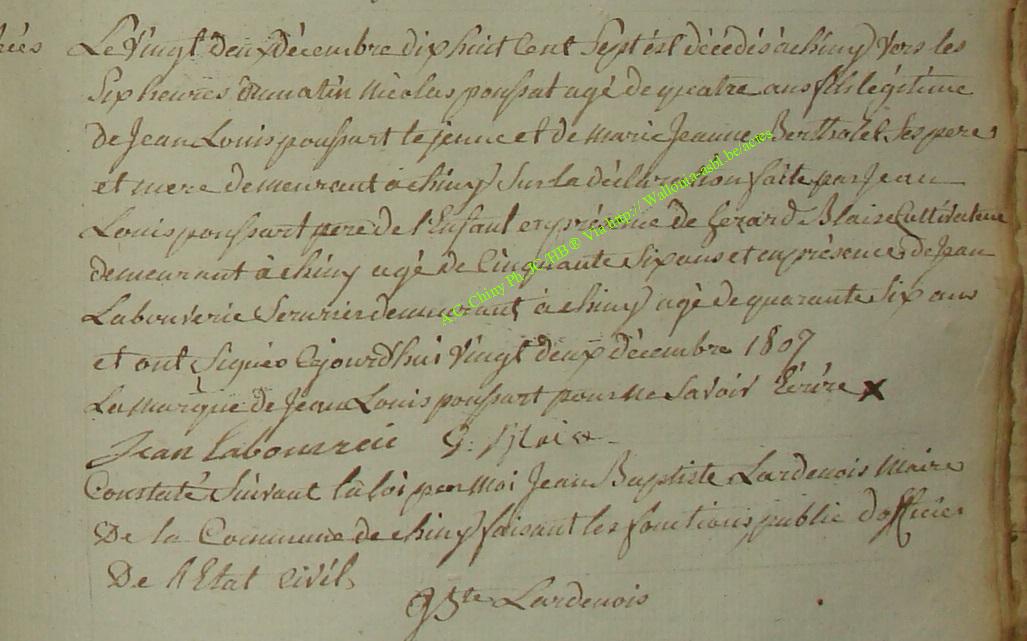 Le vingt deux décembre dix huit Cent Sept est décédés à chiny vers les
Six heures du matin Nicolas poussat agé de quatre ans fils légitime
de Jean Louis poussart le jeune et de marie Jeanne Bertholet Ses pere
et mere demeurant à chiny Sur la déclaration faite par Jean
Louis poussart pere de l'Enfant en présence de Gerard Blaise Cultivateur
demeurant à chiny agé de Cinquante Six ans et en présence de Jean
Labouverie Serurier demeurant à chiny agé de quarante Six ans
et ont Signés Cejourd'hui vingt deux décembre 1807
La marque de Jean Louis poussart pour ne Savoir Ecrire x
Jean labouvreie G: Blaise
Constaté Suivant la loi par Moi Jean Baptiste Lardenois Maire
De la Commune de chiny faisant les fonctions public d'officier
De l'Etat civil
JBte Lardenois
A.G. Chiny Ph. JC/HB ® Via http://Wallonia-asbl.be/actes